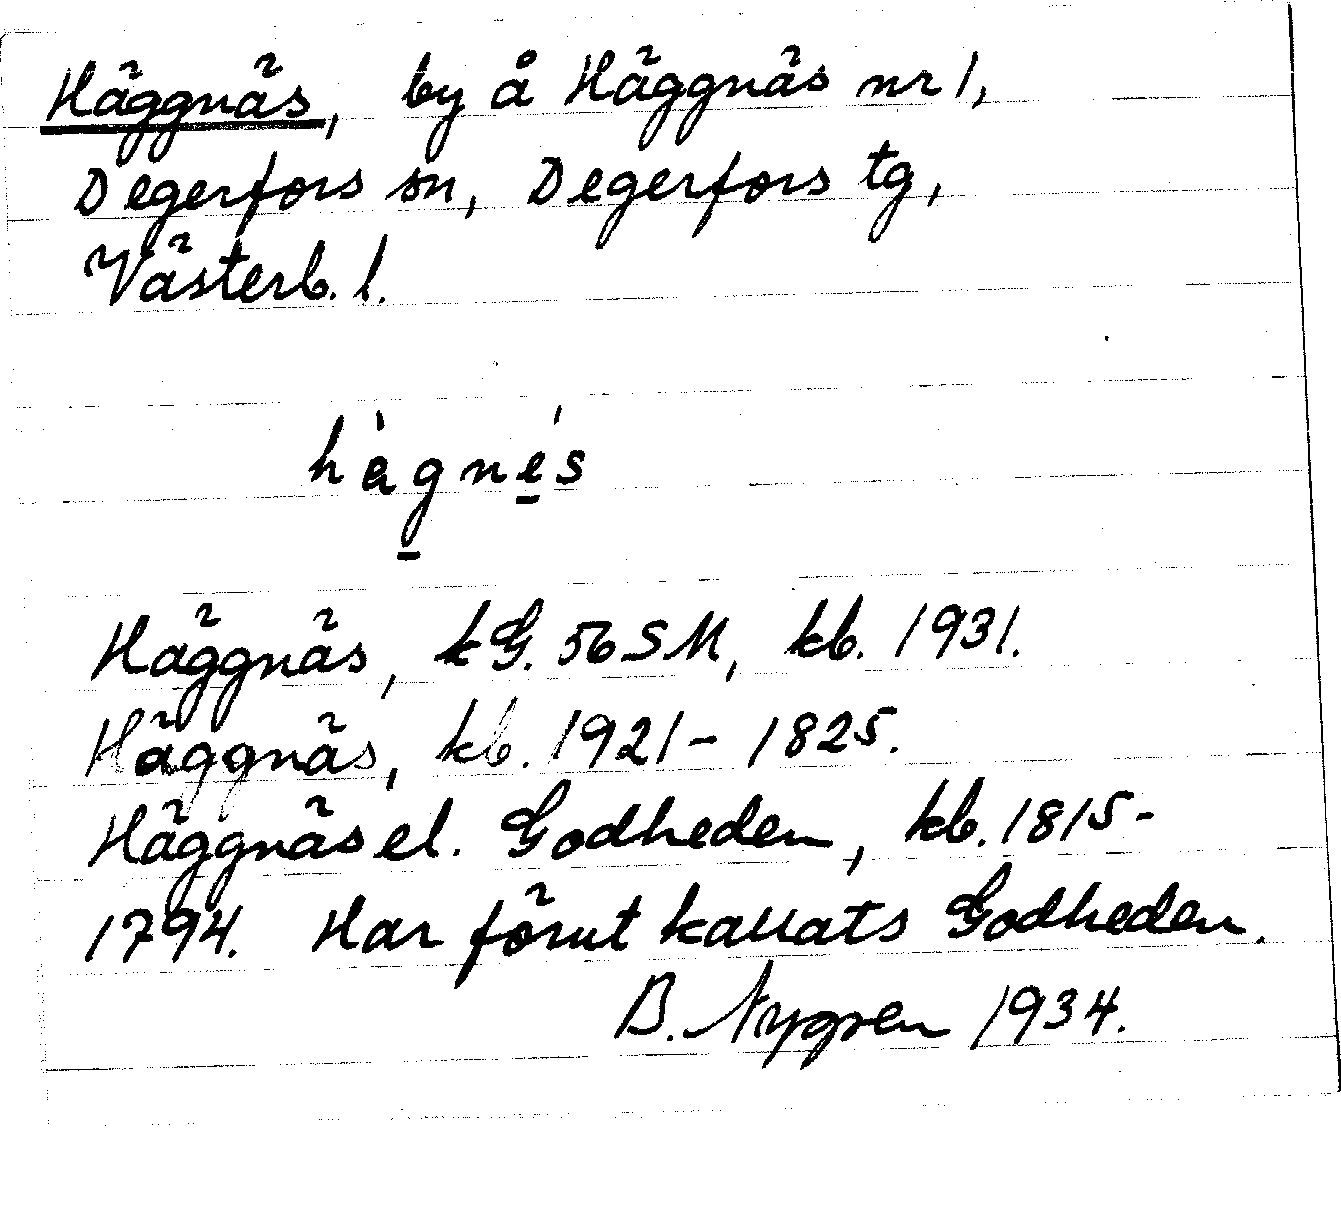 Häggnäs, by å Häggnäs nr 1,
Degerfors sn, Degerfors tg,
Västerb. l.
hàgnés
Häggnäs, kG. 56 SM, kb. 1931.
Häggnäs, kb. 1921- 1825.
Häggnäs el. Godheden, kb. 1815-
1794. Har förut kallats Godheden.
B. Nygren 1934.